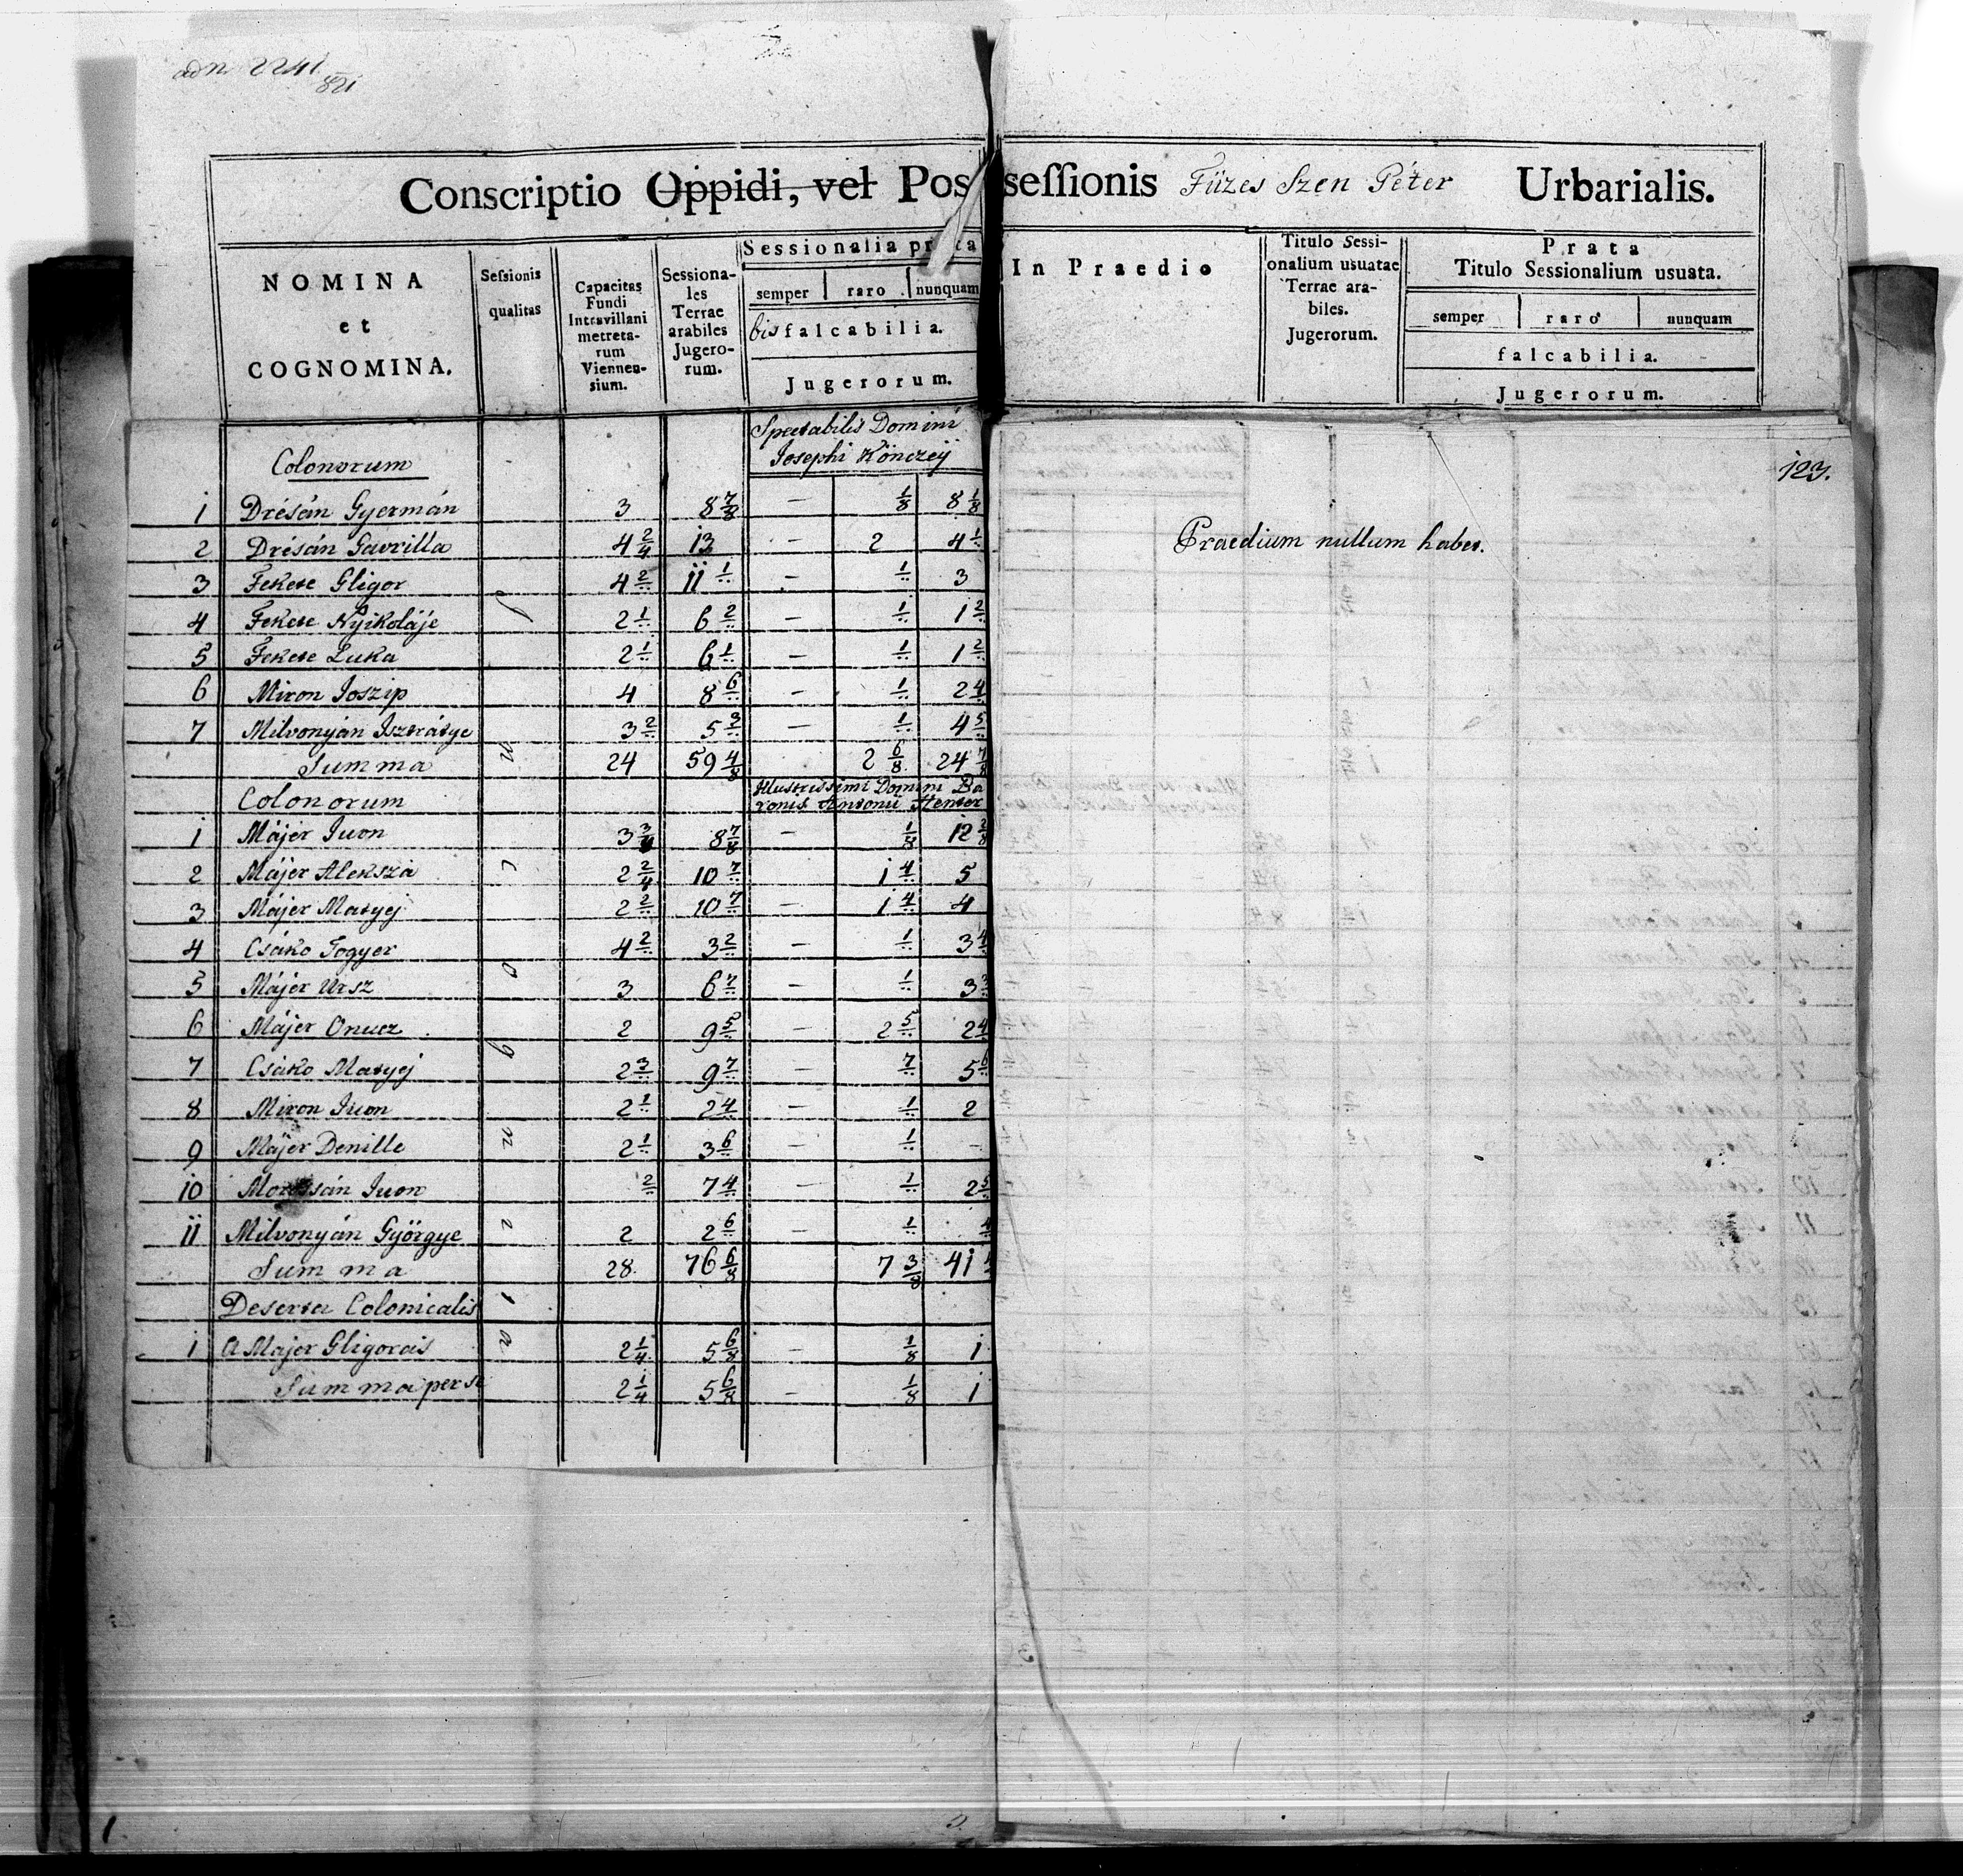 adn. 2241
821
Conscriptio Oppidi, vel Possessionis Füzes Szen Péter Urbarialis.
NOMINA et COGNOMINA.
Sessionis qualitas
Capacitas Fundi Intravillani metretarum Viennensium.
Sessionales Terrae arabiles Jugerorum.
Sessionalia prata
semper raro nunquam
bis falcabilia.
Jugerorum.
In Praedio
Titulo Sessionalium usuatae Terrae arabiles. Jugerorum.
Prata
Titulo Sessionalium usuata.
semper raro nunquam
falcabilia.
Jugerorum.
123.
Praedium nullum habet.
Spectabilis Domini
Josephi Könczeÿ
Colonorum
1 Drésán Gyermán 3 8 7/8 – 1/8 8 1/8
2 Drésán Gavrilla 4 2/4 13 – 2 4 1/..
3 Fekete Gligor 4 2/.. 11 1/.. – 1/.. 3
4 Fekete Nyikoláje 2 1/.. 6 2/.. – 1/.. 1 2/..
5 Fekete Luka 2 1/.. 6 1/.. – 1/.. 1 2/..
6 Miron Joszip 4 8 6/.. – 1/.. 2 4/..
7 Milvonyán Isztrátye 3 2/.. 5 3/.. – 1/.. 4 5/..
Summa 24 59 4/8 2 6/8 24 7/8
Colonorum Illustrissimi Domini Ba
ronis Antonii Henter
1 Májer Iuon 3 3/4 8 7/8 – 1/8 12 2/8
2 Májer Aleksza 2 2/4 10 7/.. 1 4/.. 5
3 Májer Matyej 2 2/.. 10 7/.. – 1 4/.. 4
4 Csáko Togyer 4 2/.. 3 2/.. – 1/.. 3 4/..
5 Májer Ursz 3 6 7/.. – 1/.. 3 3/..
6 Májer Onucz 2 9 5/.. – 2 5/.. 2 4/..
7 Csáko Matyej 2 3/.. 9 7/.. – 7/.. 5 6/..
8 Miron Iuon 2 1/.. 2 4/.. – 1/.. 2
9 Májer Denille 2 1/.. 3 6/.. – 1/.. –
10 Iuon 2/.. 7 4/.. – 1/.. 2 5/..
11 Milvonyán Györgye 2 2 6/.. – 1/.. 4/..
Summa 28 76 6/8 7 3/8 41
Deserta Colonicalis
1 A Majer Gligorais 2 1/4 5 6/8 – 1/8 1
Summa per se 2 1/4 5 6/8 – 1/8 1